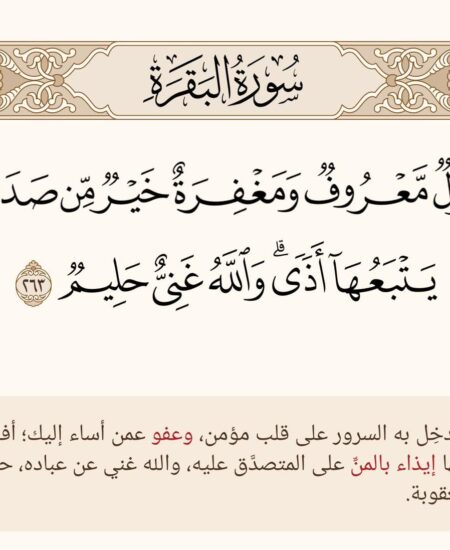 سُورَةُ البَقَرَةِ
مَّعۡرُوفٞ وَمَغۡفِرَةٌ خَيۡرٞ مِّن
يَتۡبَعُهَآ أَذٗىۗ وَٱللَّهُ غَنِيٌّ حَلِيمٞ ٢٦٣
به السرور على قلب مؤمن، وعفو عمن أساء إليك؛
إيذاء بالمنِّ على المتصدَّق عليه، والله غني عن عباده،